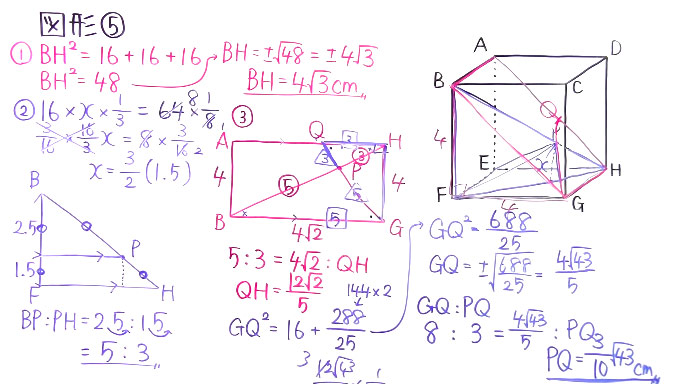 図形⑤
① BH² = 16 + 16 + 16
BH² = 48
BH = ±√48 = ±4√3
BH = 4√3 cm
② 16 × x × 1/3 = 64 × 1/8
8
1
3/16 × 16/3 x = 8 × 3/16
2
x = 3/2 (1.5)
B
2.5
P
1.5
F
H
BP : PH = 2.5 : 1.5
= 5 : 3
③
A
Q
3
H
3
3
P
4
5
5
4
B
×
4√2
5
G
5 : 3 = 4√2 : QH
QH = 12√2/5
144×2
GQ² = 16 + 288/25
3
12√43
1
A
D
B
C
4
E
x
H
F
4
G
GQ² = 688/25
GQ = ±√688/25 = 4√43/5
GQ : PQ
8 : 3 = 4√43/5 : PQ
PQ = 3/10 √43 cm